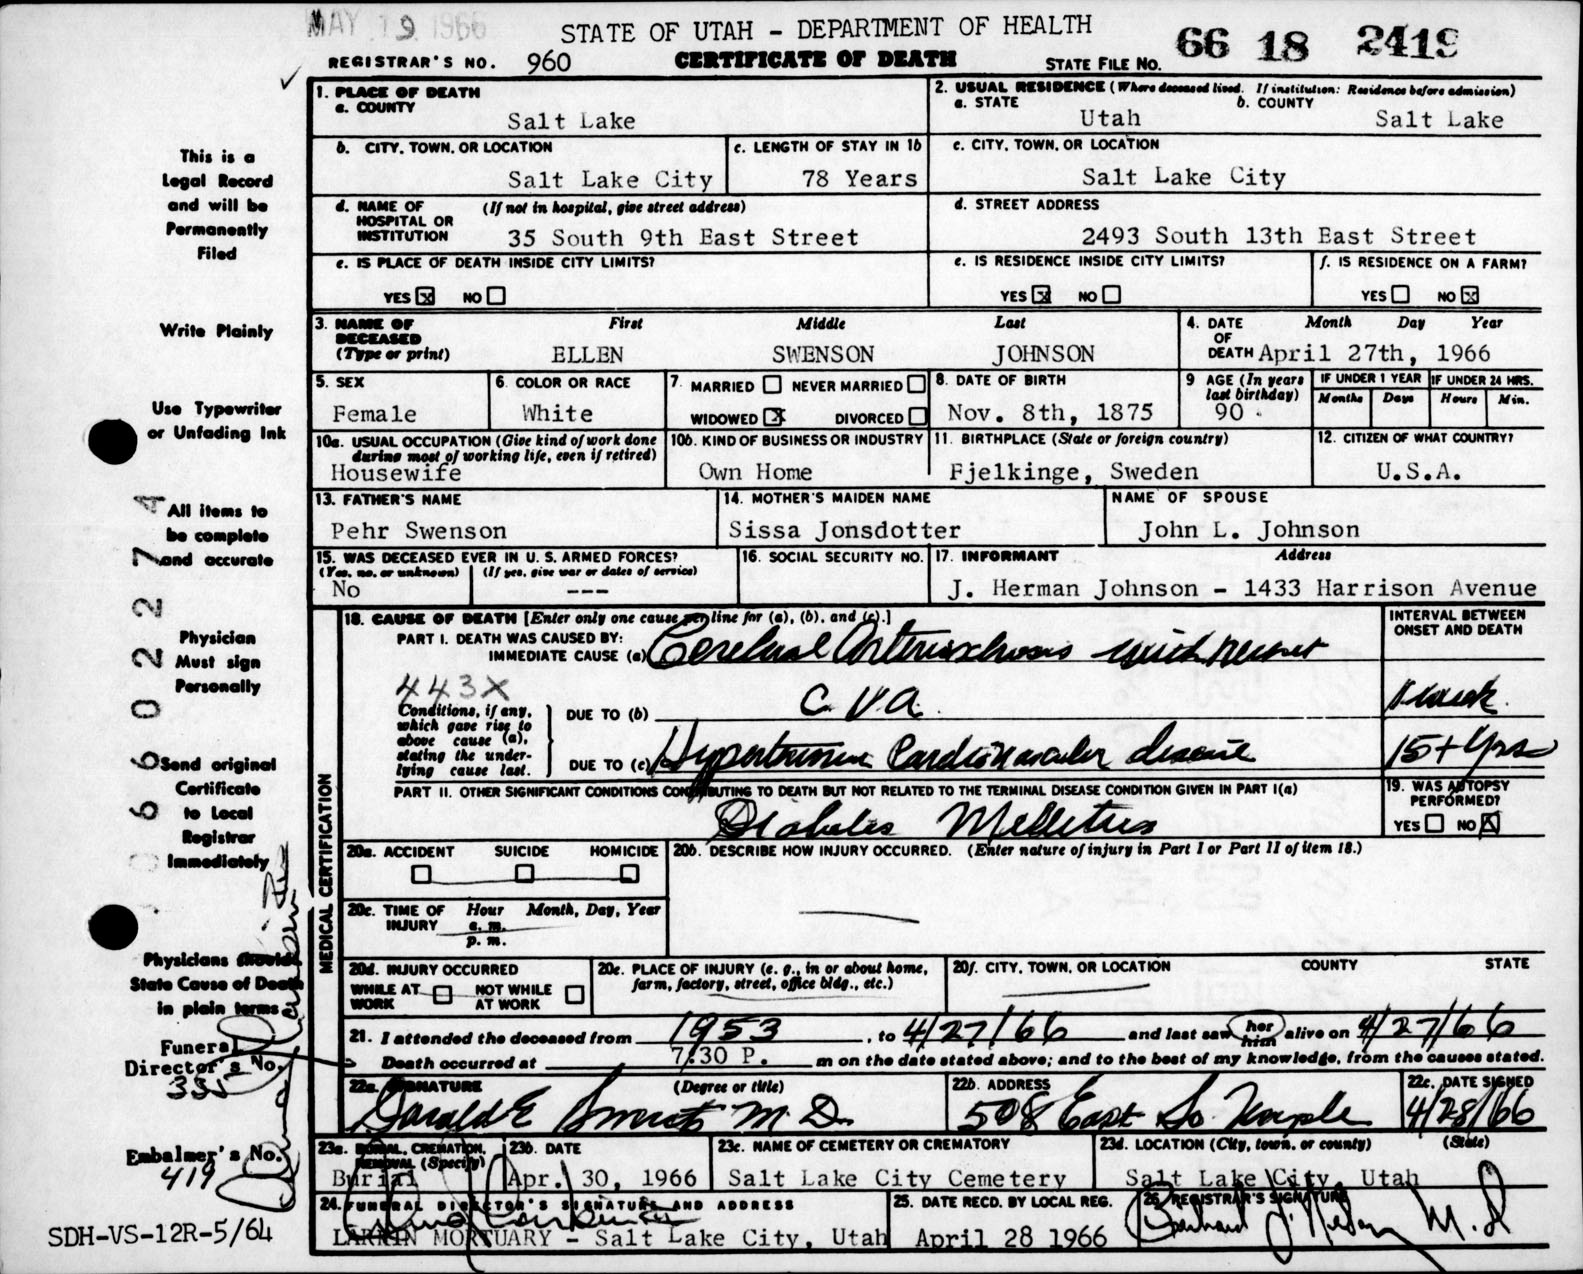 MAY 19 1966
STATE OF UTAH - DEPARTMENT OF HEALTH
66 18 2419
REGISTRAR'S NO. 960
CERTIFICATE OF DEATH
STATE FILE NO.
This is a
Legal Record
and will be
Permanently
Filed
Write Plainly
Use Typewriter
or Unfading Ink
All items to
be complete
and accurate
Physician
Must sign
Personally
Send original
Certificate
to Local
Registrar
Immediately
Physicians should
State Cause of Death
in plain terms
Funeral
Director's No.
Embalmer's No.
419
SDH-VS-12R-5/64
66022274
1. PLACE OF DEATH
a. COUNTY
Salt Lake
2. USUAL RESIDENCE (Where deceased lived. If institution: Residence before admission)
a. STATE b. COUNTY
Utah Salt Lake
b. CITY, TOWN, OR LOCATION
Salt Lake City
c. LENGTH OF STAY IN 1b
78 Years
c. CITY, TOWN, OR LOCATION
Salt Lake City
d. NAME OF HOSPITAL OR INSTITUTION (If not in hospital, give street address)
35 South 9th East Street
d. STREET ADDRESS
2493 South 13th East Street
e. IS PLACE OF DEATH INSIDE CITY LIMITS?
YES x NO
e. IS RESIDENCE INSIDE CITY LIMITS?
YES x NO
f. IS RESIDENCE ON A FARM?
YES NO x
3. NAME OF DECEASED (Type or print)
First Middle Last
ELLEN SWENSON JOHNSON
4. DATE OF DEATH Month Day Year
April 27th, 1966
5. SEX
Female
6. COLOR OR RACE
White
7. MARRIED NEVER MARRIED
WIDOWED x DIVORCED
8. DATE OF BIRTH
Nov. 8th, 1875
9 AGE (In years last birthday)
90
IF UNDER 1 YEAR
Months Days
IF UNDER 24 HRS.
Hours Min.
10a. USUAL OCCUPATION (Give kind of work done during most of working life, even if retired)
Housewife
10b. KIND OF BUSINESS OR INDUSTRY
Own Home
11. BIRTHPLACE (State or foreign country)
Fjelkinge, Sweden
12. CITIZEN OF WHAT COUNTRY?
U.S.A.
13. FATHER'S NAME
Pehr Swenson
14. MOTHER'S MAIDEN NAME
Sissa Jonsdotter
NAME OF SPOUSE
John L. Johnson
15. WAS DECEASED EVER IN U. S. ARMED FORCES?
(Yes, no. or unknown) (If yes, give war or dates of service)
No ---
16. SOCIAL SECURITY NO.
17. INFORMANT Address
J. Herman Johnson - 1433 Harrison Avenue
MEDICAL CERTIFICATION
18. CAUSE OF DEATH [Enter only one cause per line for (a), (b), and (c).]
INTERVAL BETWEEN ONSET AND DEATH
PART I. DEATH WAS CAUSED BY:
IMMEDIATE CAUSE (a) Cerebral Arteriosclerosis with recent
443X
Conditions, if any, which gave rise to above cause (a), stating the underlying cause last.
DUE TO (b) CVA
DUE TO (c) Hypertensive Cardiovascular disease 15+ yrs
PART II. OTHER SIGNIFICANT CONDITIONS CONTRIBUTING TO DEATH BUT NOT RELATED TO THE TERMINAL DISEASE CONDITION GIVEN IN PART I(a)
Diabetes Mellitus
19. WAS AUTOPSY PERFORMED?
YES NO X
20a. ACCIDENT SUICIDE HOMICIDE
20b. DESCRIBE HOW INJURY OCCURRED. (Enter nature of injury in Part I or Part II of item 18.)
20c. TIME OF INJURY Hour Month, Day, Year
a. m.
p. m.
20d. INJURY OCCURRED
WHILE AT WORK NOT WHILE AT WORK
20e. PLACE OF INJURY (e. g., in or about home, farm, factory, street, office bldg., etc.)
20f. CITY, TOWN, OR LOCATION COUNTY STATE
21. I attended the deceased from 1953, to 4/27/66 and last saw her him alive on 4/27/66
Death occurred at 7:30 P. m on the date stated above; and to the best of my knowledge, from the causes stated.
22a. SIGNATURE (Degree or title)
M.D.
22b. ADDRESS
508 East So. Temple
22c. DATE SIGNED
4/28/66
23a. BURIAL, CREMATION, REMOVAL (Specify)
Burial
23b. DATE
Apr. 30, 1966
23c. NAME OF CEMETERY OR CREMATORY
Salt Lake City Cemetery
23d. LOCATION (City, town, or county) (State)
Salt Lake City, Utah
24. FUNERAL DIRECTOR'S SIGNATURE AND ADDRESS
LARKIN MORTUARY - Salt Lake City, Utah
25. DATE RECD. BY LOCAL REG.
April 28 1966
26. REGISTRAR'S SIGNATURE
M.D.